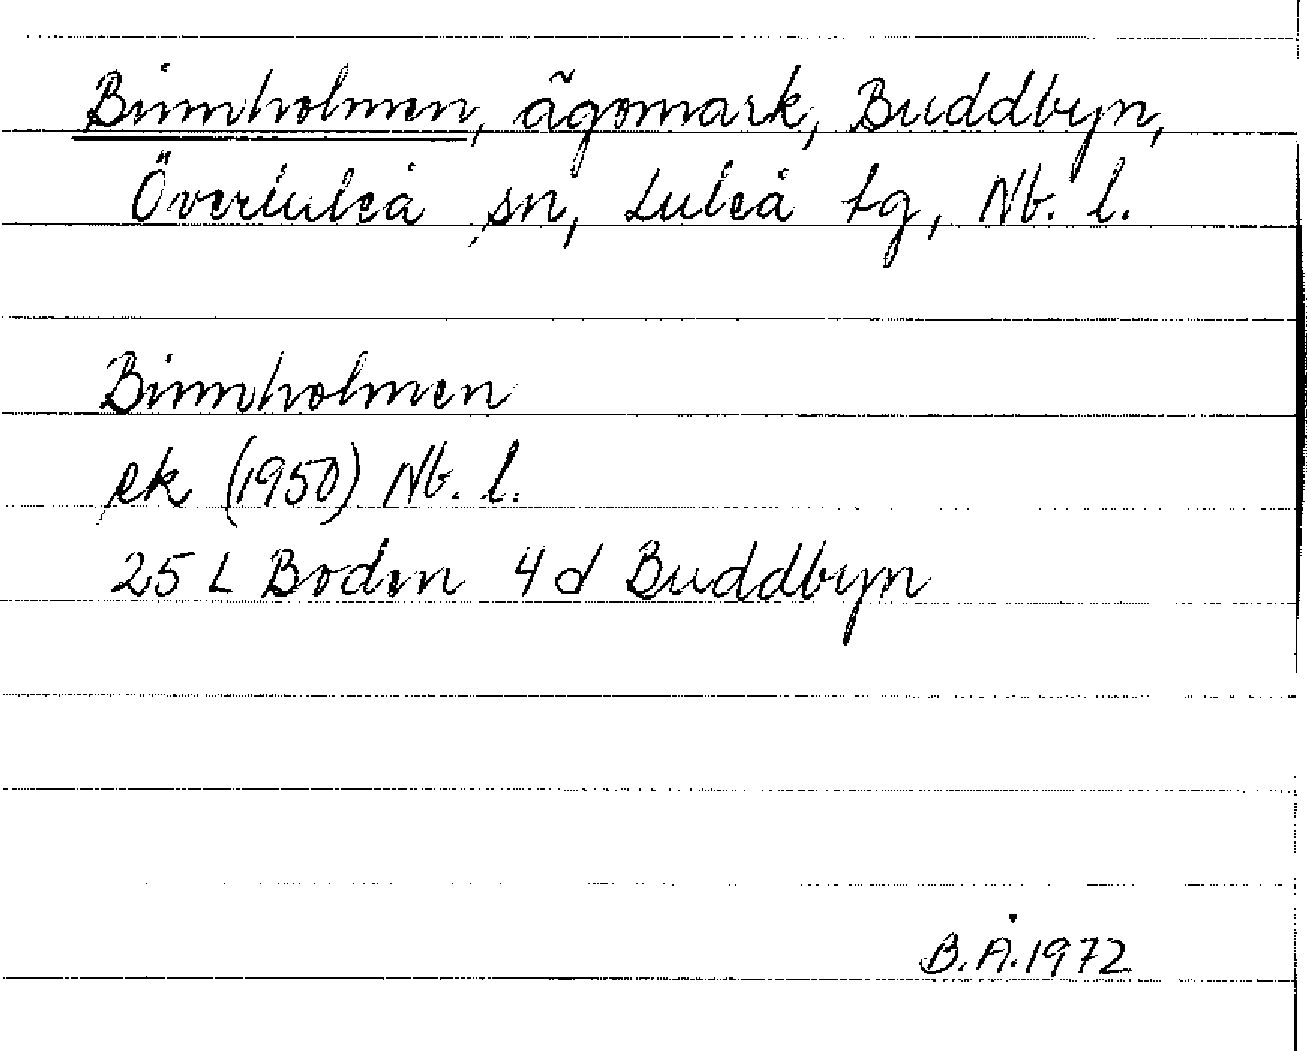 Binnholmen, ägomark, Buddbyn,
Överluleå sn, Luleå tg, Nb. l.
Binnholmen
ek (1950) Nb. l.
25 L Boden 4 d Buddbyn
B.Å.1972